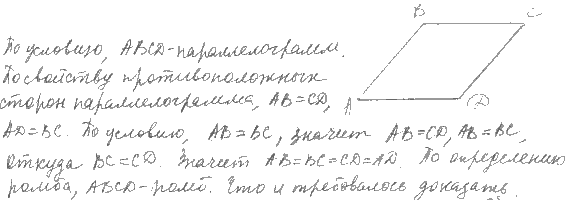 B C
По условию, ABCD - параллелограмм.
По свойству противоположных
сторон параллелограмма, AB=CD,
A D
AD=BC. По условию, AB=BC, значит AB=CD, AB=BC,
откуда BC=CD. Значит AB=BC=CD=AD. По определению
ромба, ABCD-ромб. Что и требовалось доказать.